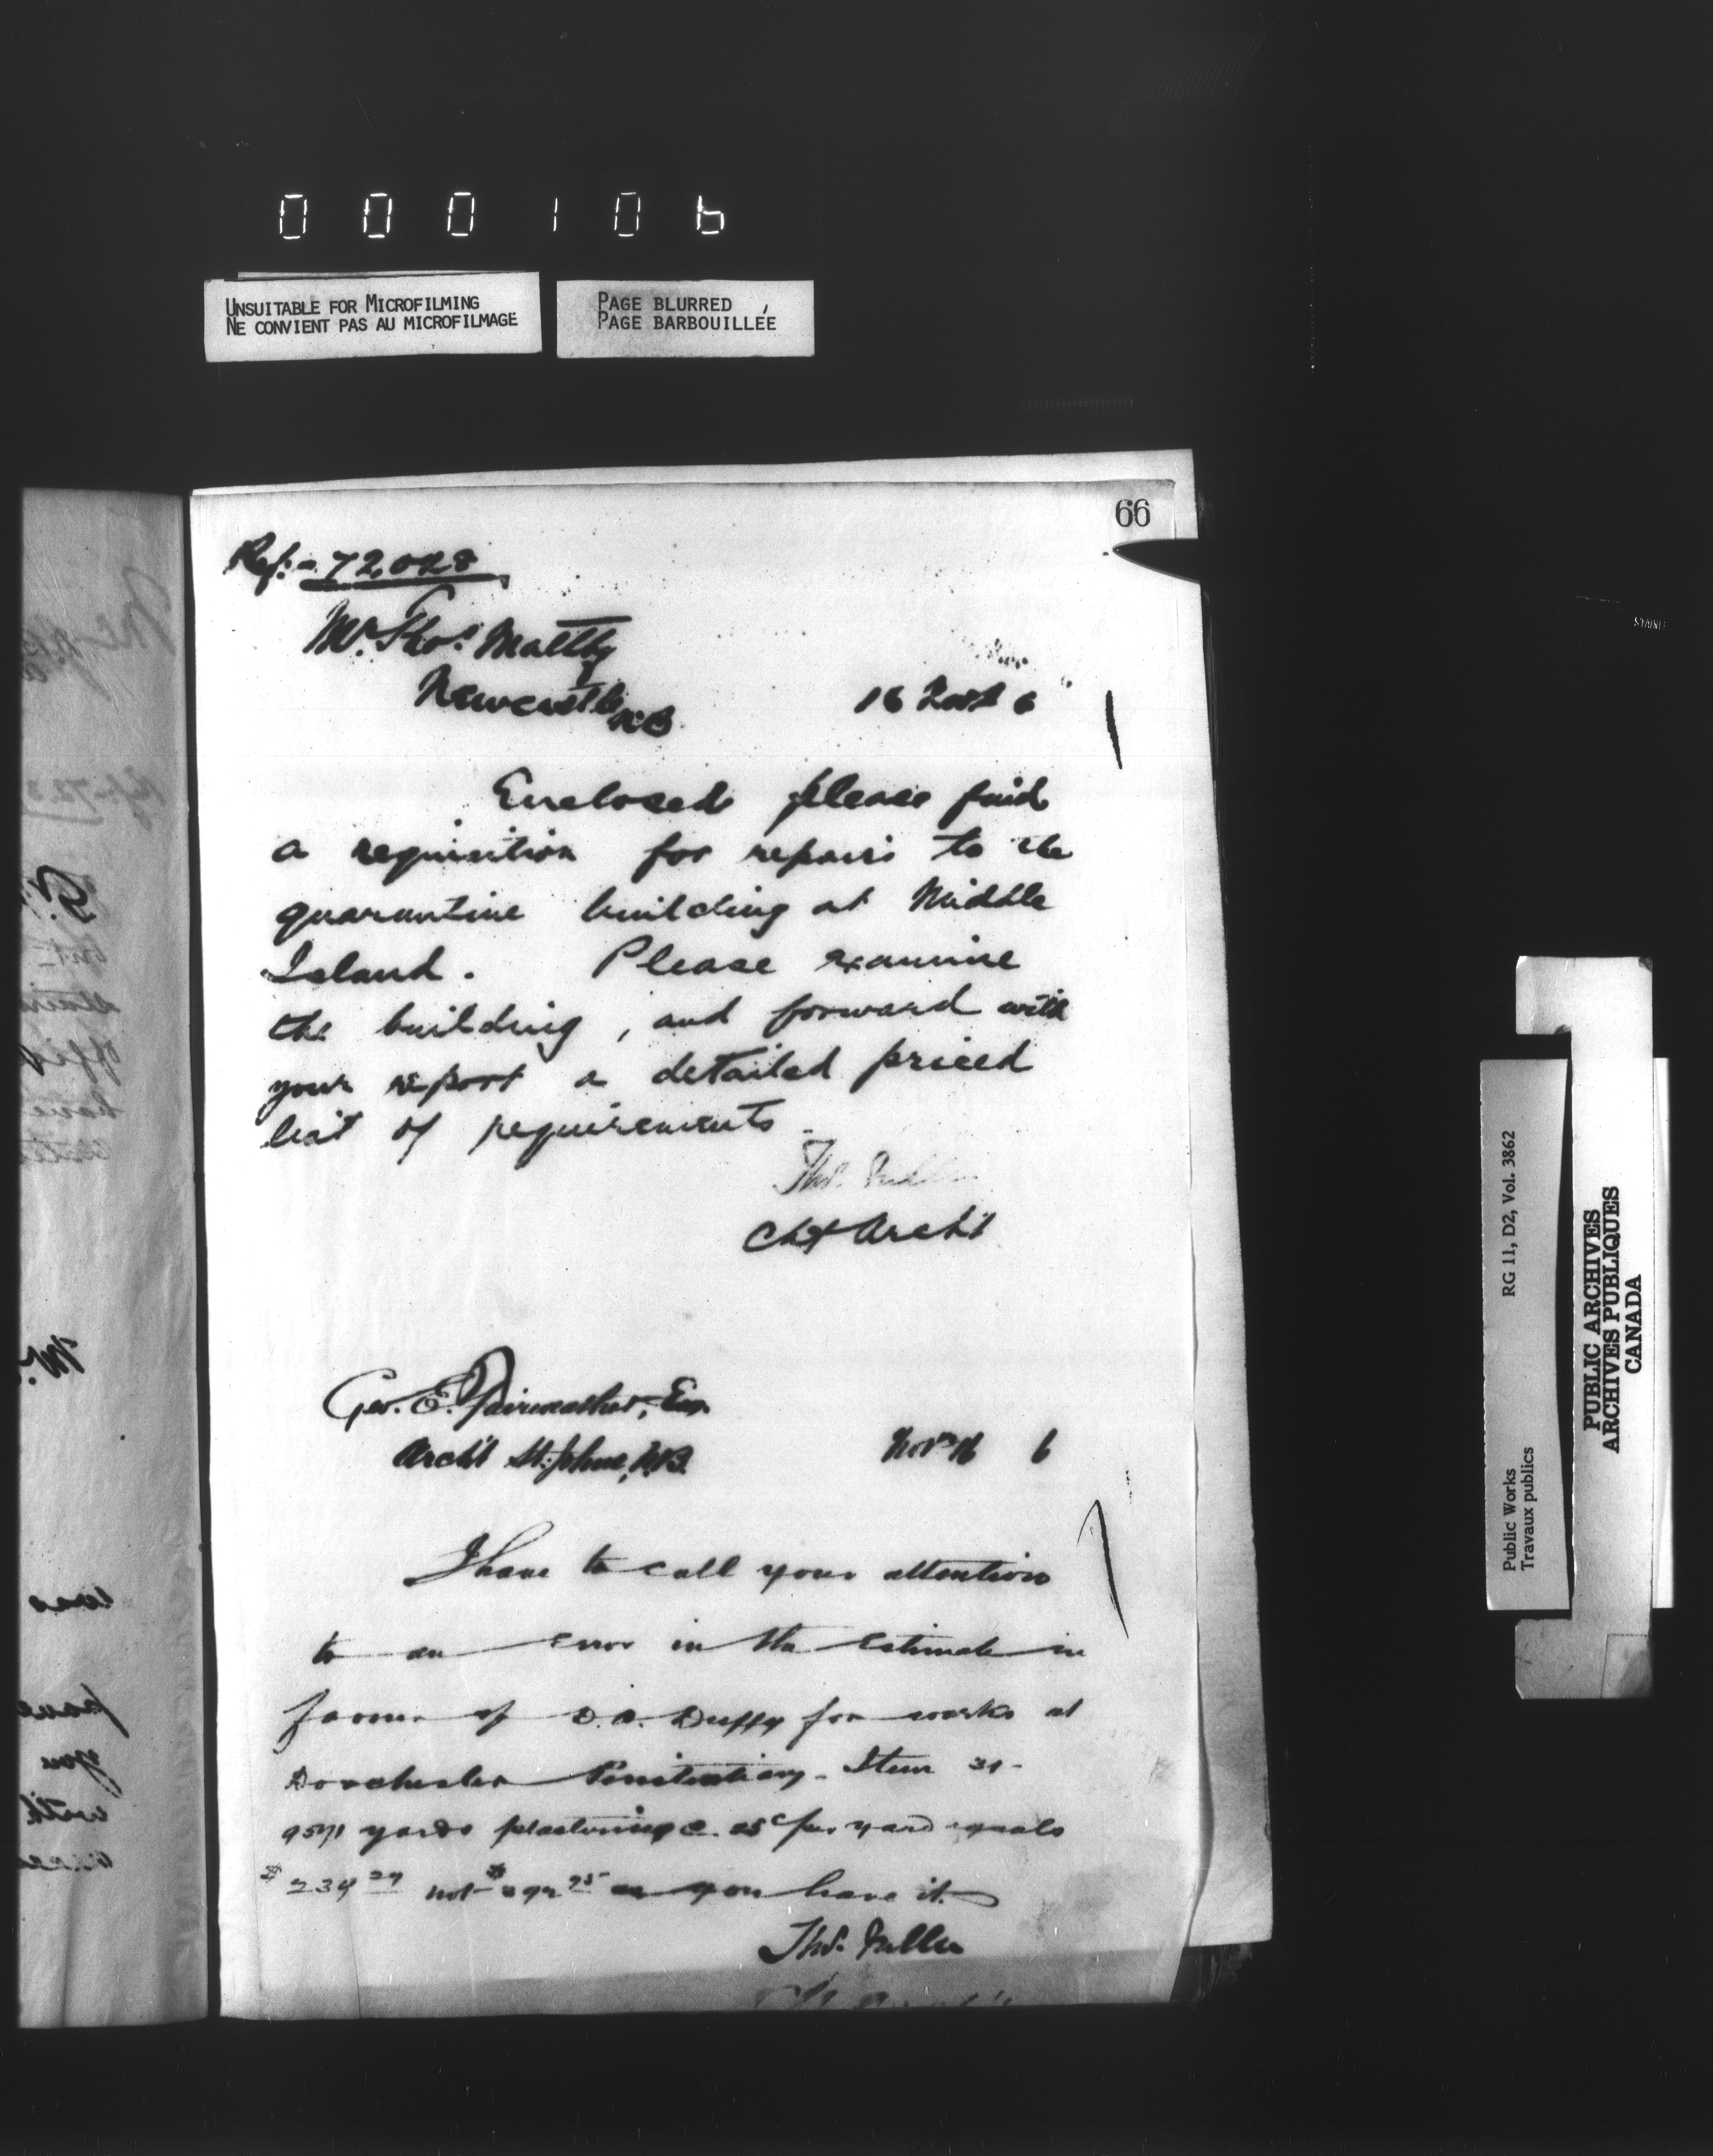 000106
UNSUITABLE FOR MICROFILMING
NE CONVIENT PAS AU MICROFILMAGE
PAGE BLURRED
PAGE BARBOUILLÉE
66
Ref:- 72,028
Mr. Thos. Maltby
Newcastle N.B.
16 Nov 6
Enclosed please find
a requisition for repairs to the
quarantine building at Middle
Island. Please examine
the building, and forward with
your report a detailed priced
list of requirements.
Thos. Fuller
Chf Archt
Geo. E. Fairweather, Esq.
Archt St. Johns, N.B.
Nov 16 6
I have to call your attention
to an error in the estimate in
favour of D.A. Duffy for works at
Dorchester Penitentiary - Item 31 -
yards plastering @ 25c per yard equals
not as you have it.
Thos. Fuller
RG 11, D2, Vol. 3862
Public Works
Travaux publics
PUBLIC ARCHIVES
ARCHIVES PUBLIQUES
CANADA